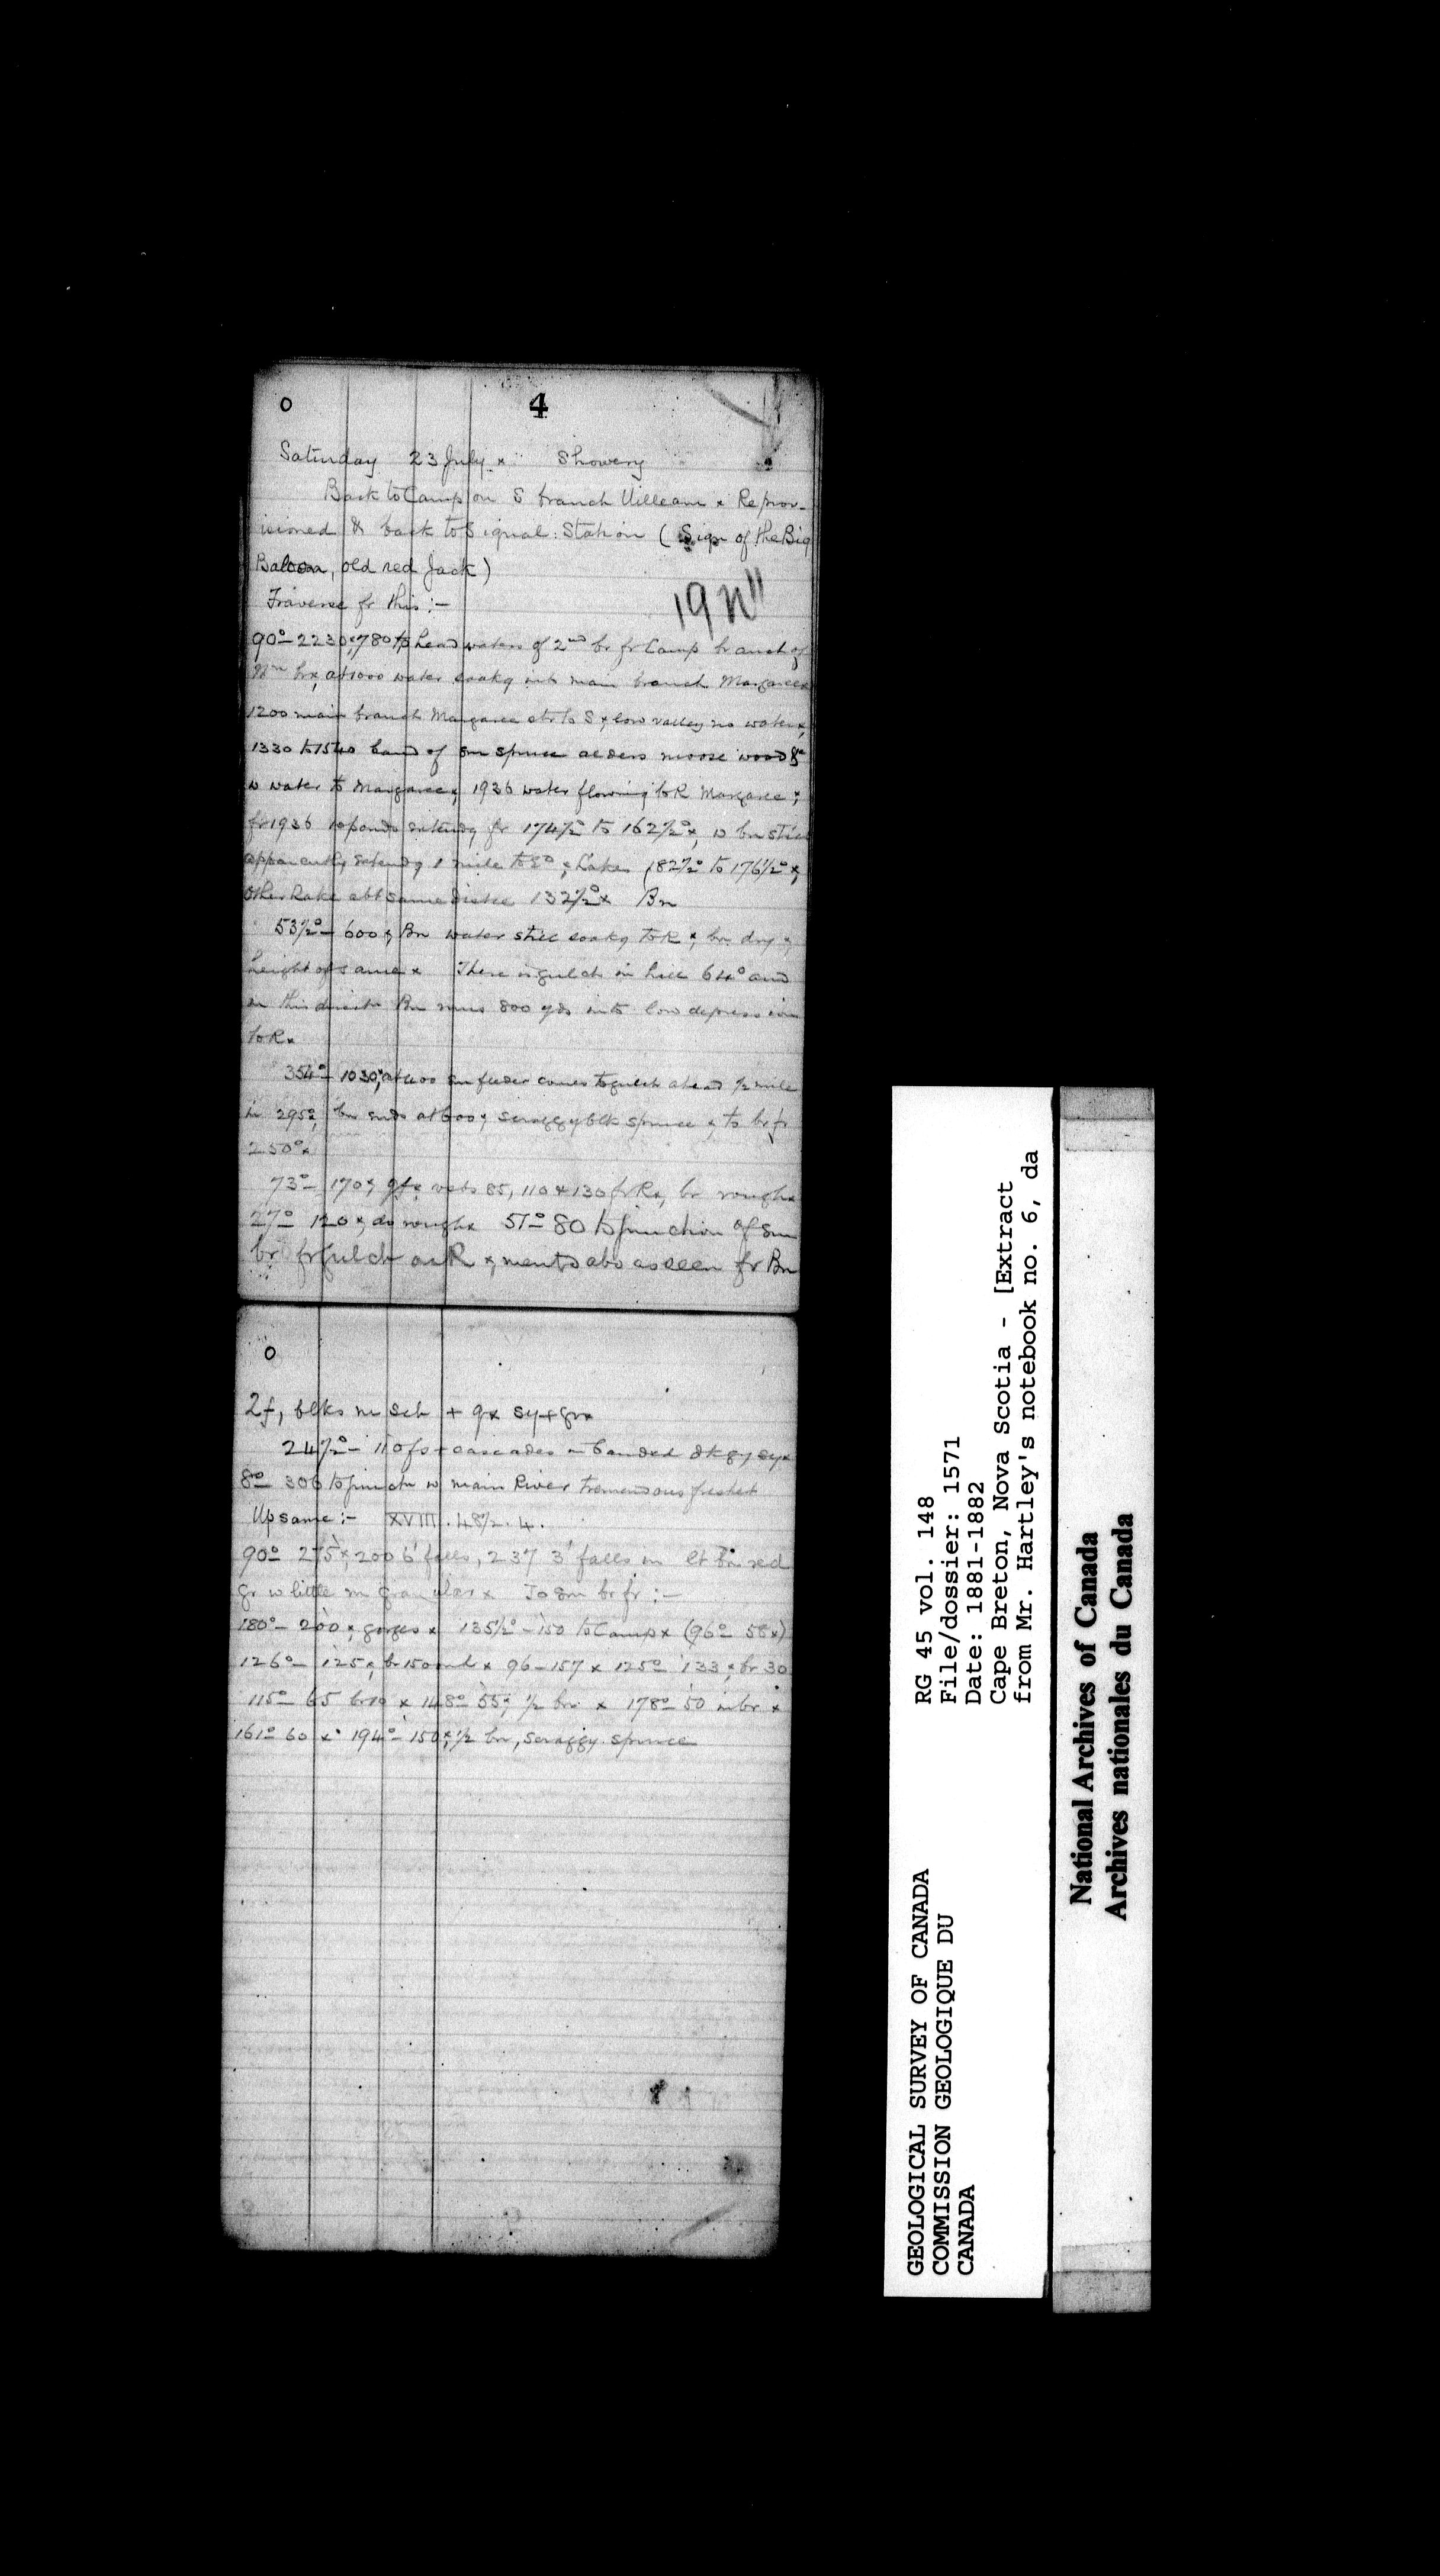 0 4
Saturday 23 July x Showery
Back to Camp on S branch William x Reprov-
isioned & back to Signal Station (Sign of the Big
Baloon, old red Jack)
Traverse fr this :-
19 N"
90° - 2230 x, 780 to head waters of 2nd br fr Camp branch of
br x, at 1000 water soakg into main branch Margaree x
1200 main branch Margaree str to S x, low valley no water x,
1330 to 1540 band of sm spruce alders moose wood &c
w water to Margaree x, 1936 water flowing to R Margaree x,
fr 1936 10 ponds extendg fr 174½° to 162½° x, w bn still
apparently extendg 1 mile to Sd x, Lakes 182½° to 176½° x,
other Lake abt same distce 132½° x Bn
53½° - 600 x, Bn water still soakg to R x, bn dry x,
height of same x There is gulch in hill 64° and
in this directn Bn runs 800 yds into low depression
to R x
354° - 1030 x, at 400 sm feeder comes to gulch ahead ½ mile
in 295° x, bn ends at 600 x, scraggy blk spruce x, to br fr
250° x
73° - 170 x, gf x, vets 85, 110 & 130 fr R x, br rough x
27° - 120 x, do rough x 51° - 80 to junction of sm
br fr gulch on R x, mentd abo as seen fr Bn
0
2f, blks m sch + gx sy + gr x
24½° - 110 fs + cascades in banded dk gy sy x
8° - 306 to junctn w main River tremendous freshet
Up same :- XVIII. 48½. 4.
90° - 275 x, 200 6' falls, 237 3' falls in lt bn red
gr w little m granular x To sm br fr :-
180° - 200 x, gorges x 135½° - 150 to Camp x (96° - 58 x)
126° - 125 x, br 150 x 96 - 157 x 125° - 133 x, br 30
115° - 65 br 10 x 148° - 55 x, ½ bn x 178° - 50 in br x
161° - 60 x 194° - 150 x, ½ bn, scraggy spruce
GEOLOGICAL SURVEY OF CANADA
COMMISSION GEOLOGIQUE DU
CANADA
RG 45 vol. 148
File/dossier: 1571
Date: 1881-1882
Cape Breton, Nova Scotia - [Extract
from Mr. Hartley's notebook no. 6, da
National Archives of Canada
Archives nationales du Canada